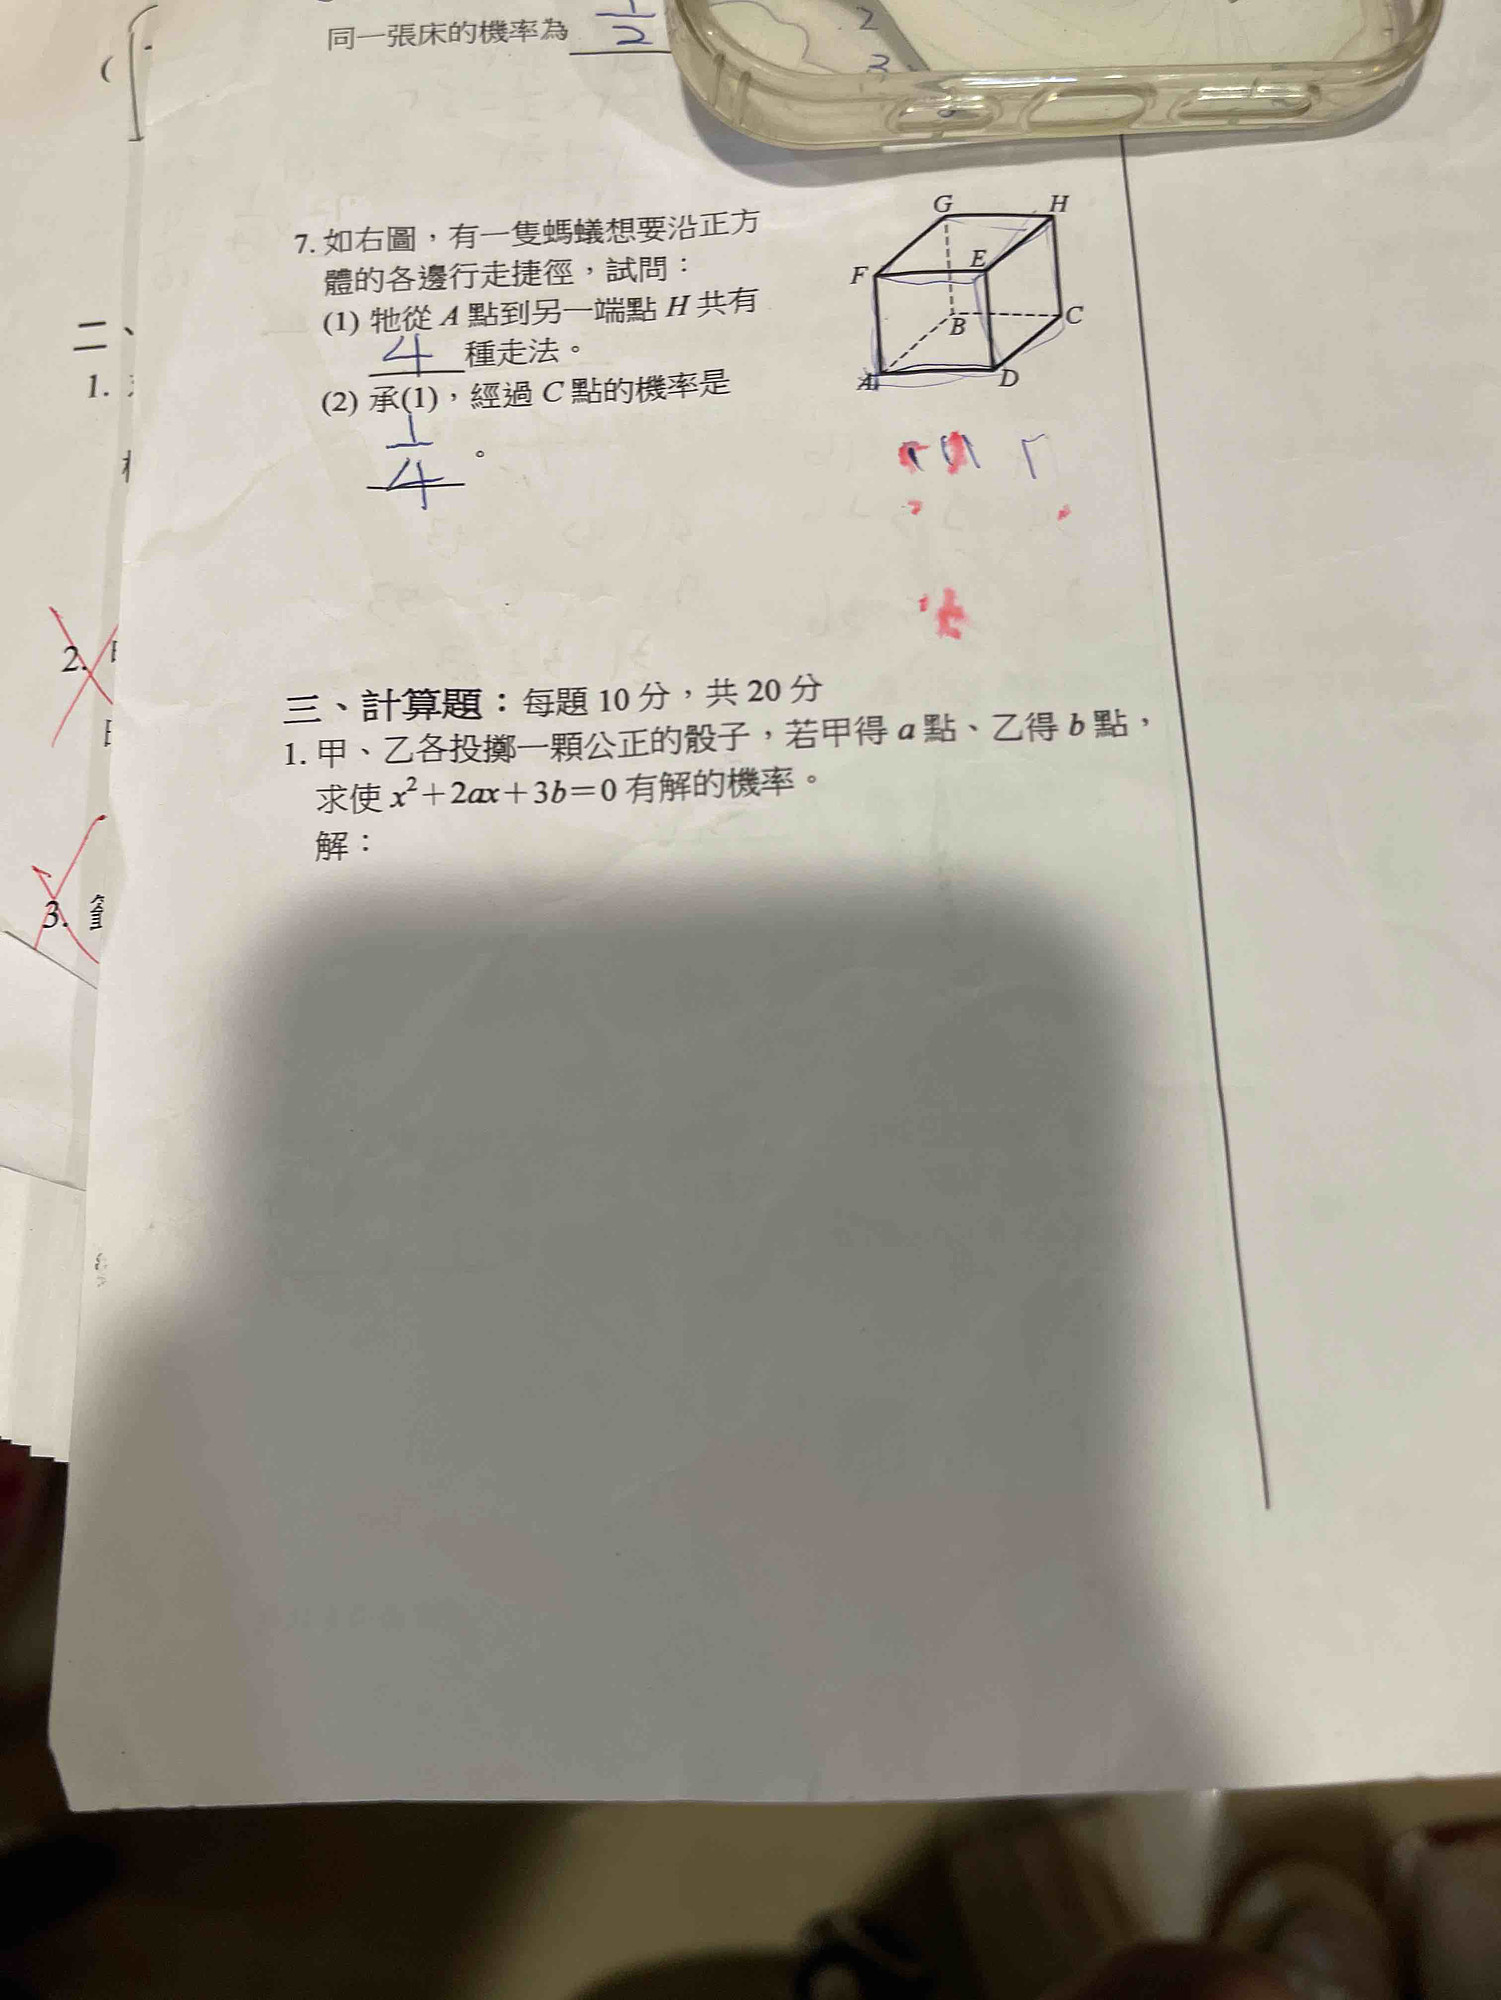 同一張床的機率為 1/2
2
3
7. 如右圖，有一隻螞蟻想要沿正方
體的各邊行走捷徑，試問：
(1) 牠從 A 點到另一端點 H 共有
4 種走法。
(2) 承(1)，經過 C 點的機率是
1/4 。
G H
F E
B C
A D
二、
1.
2.
3.
三、計算題：每題 10 分，共 20 分
1. 甲、乙各投擲一顆公正的骰子，若甲得 a 點、乙得 b 點，
求使 x²+2ax+3b=0 有解的機率。
解：